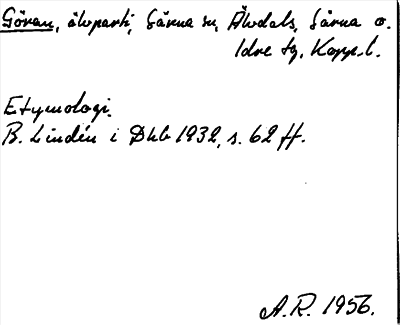 Göran, älvparti, Särna sn, Älvdals, Särna o.
Idre tg, Kopp. l.
Etymologi.
B. Lindén i Dhb 1932, s. 62 ff.
A.R. 1956.